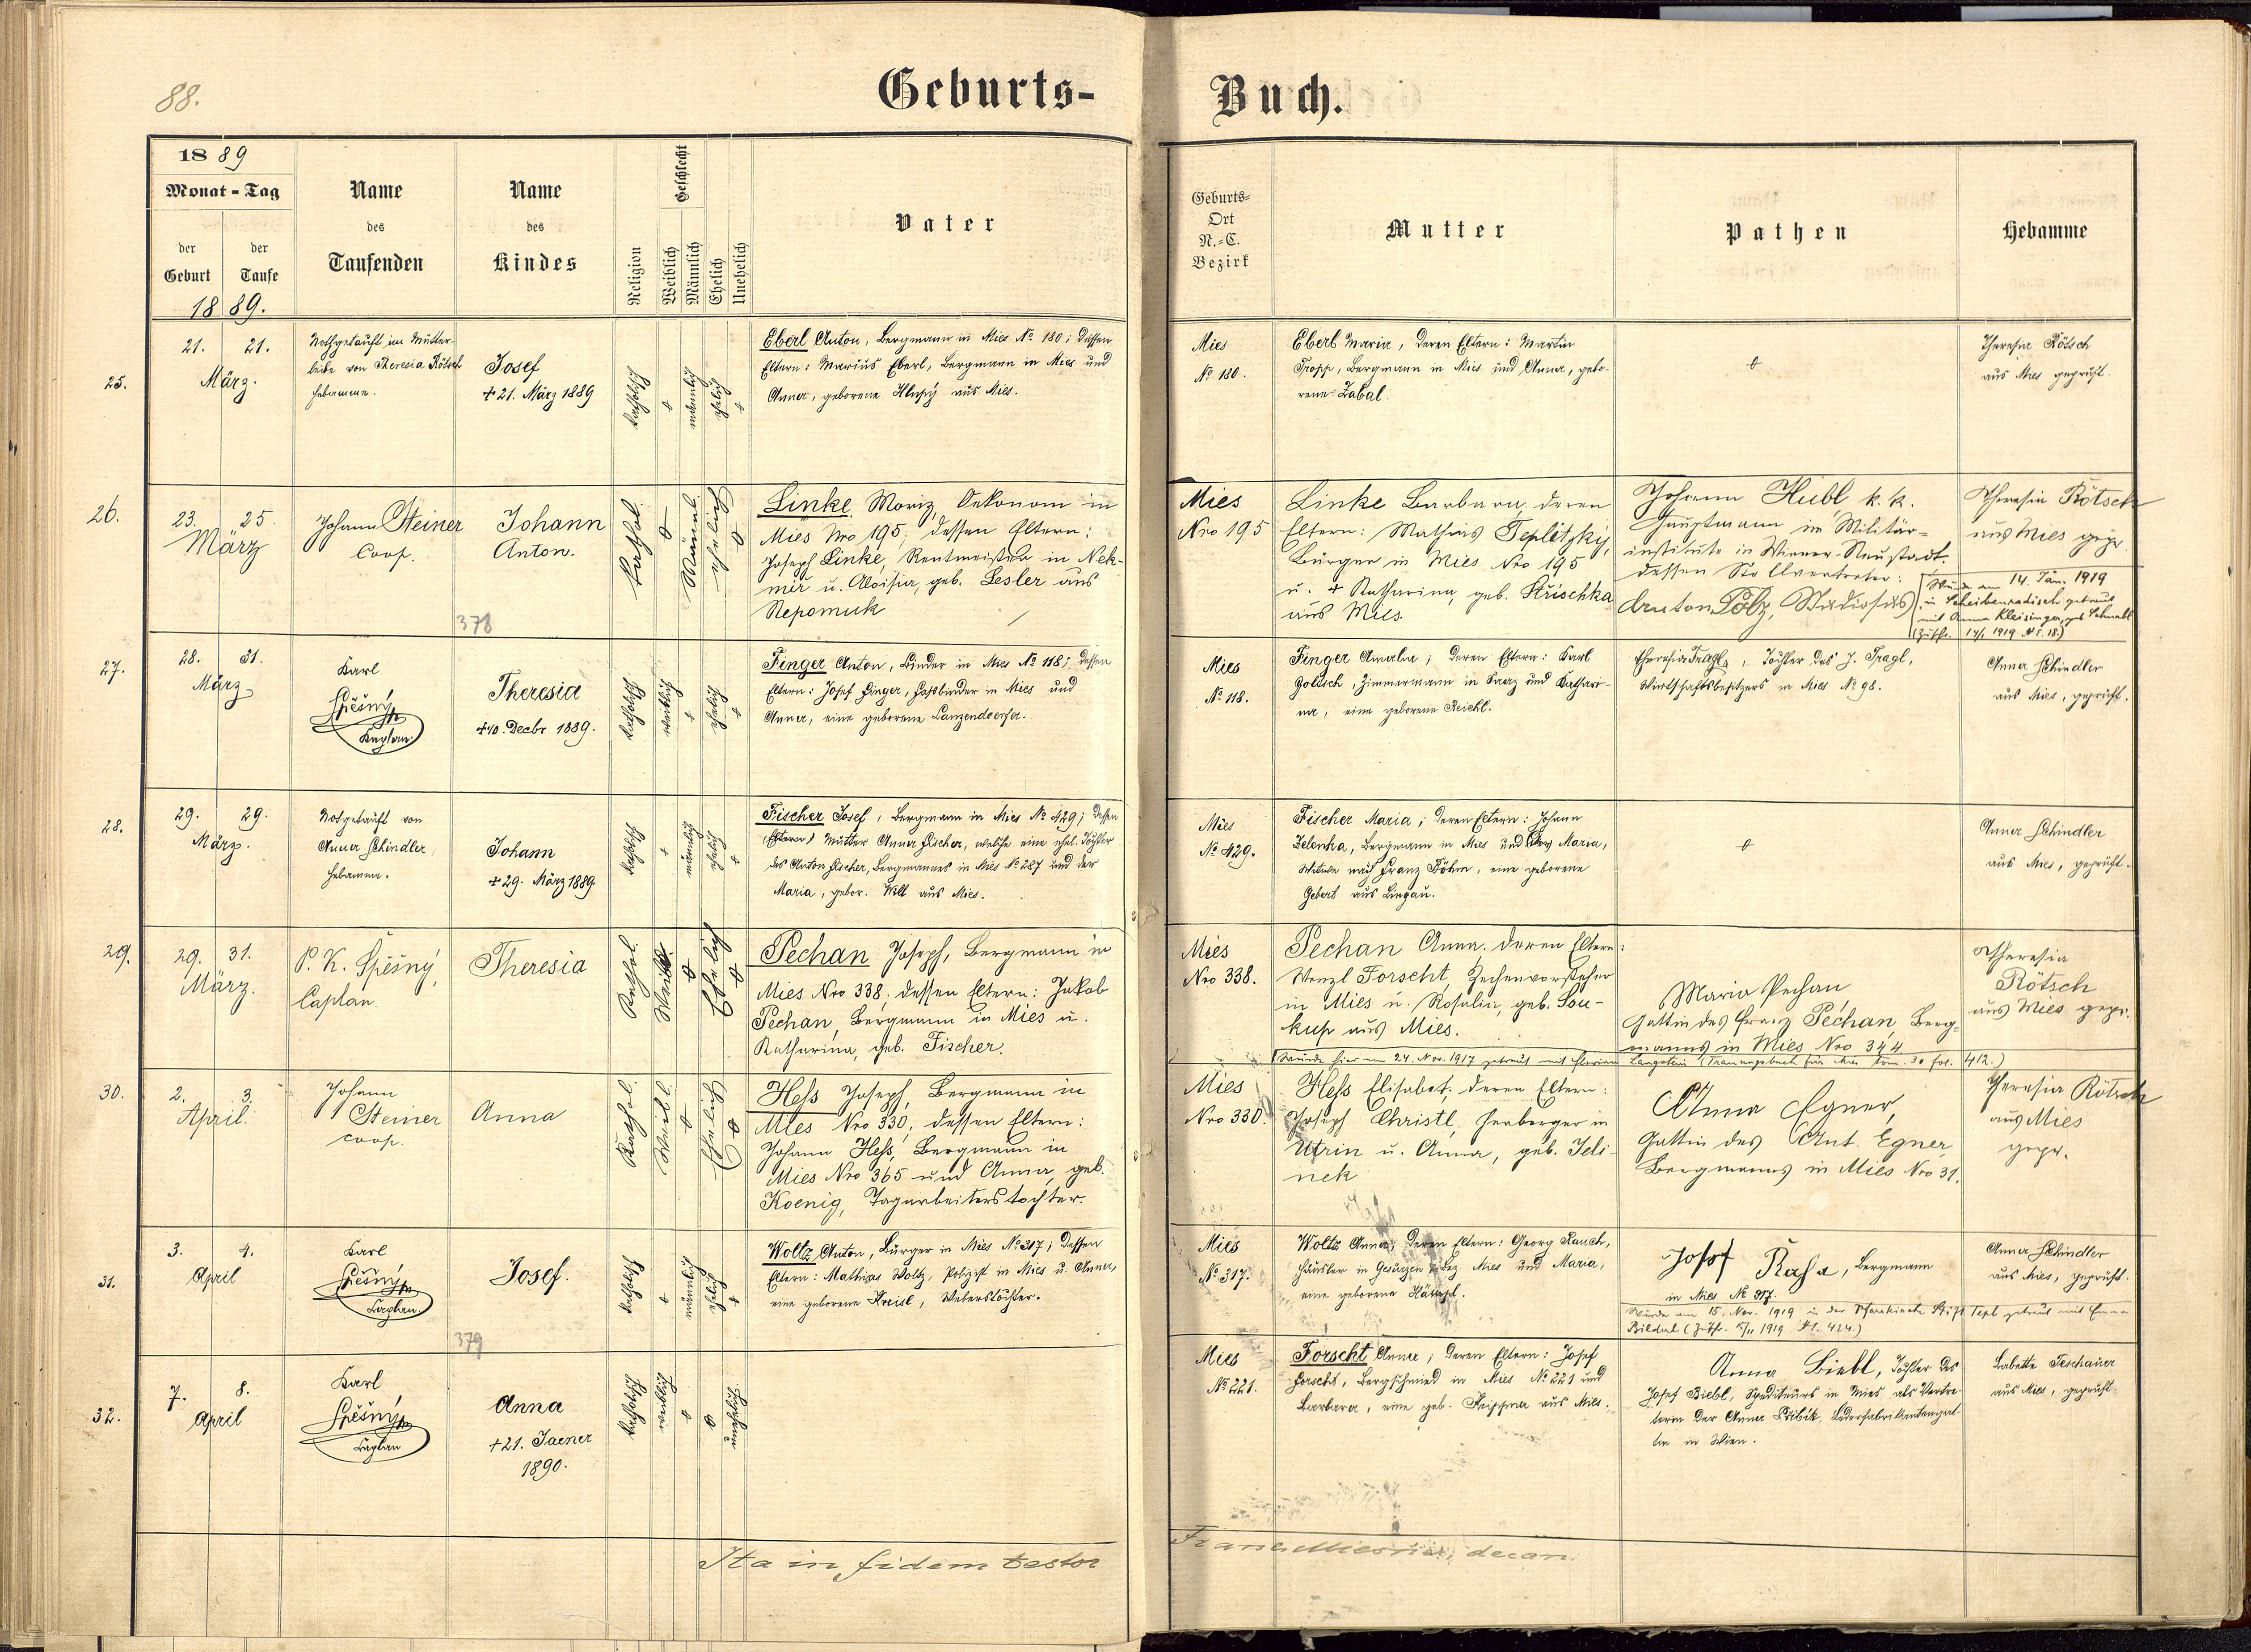 88.
Geburts-Buch.
1889
Monat-Tag
der Geburt
der Taufe
1889.
Name des Taufenden
Name des Kindes
Religion
Geschlecht
Weiblich
Männlich
Ehelich
Unehelich
Vater
Geburts-Ort N.-C. Bezirk
Mutter
Pathen
Hebamme
25.
21. 21.
März.
Nothgetauft im Mutter-
leibe von Theresia Rötsch
Hebamme.
Josef
+ 21. März 1889
katholisch
männlich
ehelich
Eberl Anton, Bergmann in Mies No 180; dessen
Eltern: Marius Eberl, Bergmann in Mies und
Anna, geborene aus Mies.
Mies
No 180.
Eberl Maria, deren Eltern: Martin
Bergmann in Mies und Anna, gebo-
rene Zabal.
Theresia Rötsch
aus Mies geprüft.
26.
23. 25.
März
Johann Steiner
Coop.
Johann
Anton.
378
Kathol.
Männl.
ehelich
Linke Moriz, Oekonom in
Mies Nro 195; dessen Eltern:
Joseph Linke, Rentmeister in Nek-
mir u. Aloisia, geb. Lesler aus
Nepomuk
Mies
Nro 195
Linke Barbara, deren
Eltern: Mathias Teplitzky,
Bürger in Mies Nro 195
u. + Katharina, geb. Krischka
aus Mies.
Johann Hübl k. k.
Hauptmann im Militär-
institute in Wiener-Neustadt.
dessen Stellvertreter:
Anton Pölz, Studiosus
Wurde am 14. Jän. 1919
in Scheibenradisch getraut
mit Anna Kleisinger, geb. Schnabl
(Zuschr. 14/1 1919 N.E. 18.)
Theresia Rötsch
aus Mies gepr.
27.
28. 31.
März
Karl
Spěšný
Kaplan
Theresia
+ 10. Decbr 1889.
katholisch
weiblich
ehelich
Finger Anton, Binder in Mies No 118; dessen
Eltern: Josef Finger, Faßbinder in Mies und
Anna, eine geborene Lanzendoerfer.
Mies
No 118.
Finger Amalia; deren Eltern: Karl
Golisch, Zimmermann in Saaz und Kathari-
na, eine geborene Reichl.
Theresia Tragl, Tochter des J. Tragl,
Wirtschaftsbesitzers in Mies No 98.
Anna Schindler
aus Mies, geprüft.
28.
29. 29.
März.
Notgetauft von
Anna Schindler
Hebamme.
Johann
+ 29. März 1889
katholisch
männlich
ehelich
Fischer Josef, Bergmann in Mies No 429; dessen
(Eltern) Mutter Anna Fischer, welche eine ehel. Tochter
des Anton Fischer, Bergmannes in Mies No 287 und der
Maria, gebor. Will aus Mies.
Mies
No 429.
Fischer Maria; deren Eltern: Johann
Zelenka, Bergmann in Mies und Maria,
Witwe nach Franz Böhm, eine geborene
Gebert aus Lingau.
Anna Schindler
aus Mies, geprüft.
29.
29. 31.
März.
P. K. Spěšný,
Caplan.
Theresia
Kathol.
Weibl.
Ehelich
Pechan Joseph, Bergmann in
Mies Nro 338. dessen Eltern: Jakob
Pechan, Bergmann in Mies u.
Katharina, geb. Fischer.
Mies
Nro 338.
Pechan Anna, deren Eltern:
Wenzl Forscht, Zechenvorsteher
in Mies u. Rosalia, geb. Sou-
kup aus Mies.
Maria Pechan
Gattin des Franz Pechan, Berg-
manns in Mies Nro 344
Theresia
Rötsch
aus Mies gepr.
(Wurde hier am 24. Nov. 1917 getraut mit Florian Langstein (Trauungsbuch für Mies tom. 30 fol. 412.)
30.
2. 3.
April.
Johann
Steiner
coop.
Anna
Kathol.
Weibl.
Ehelich
Hess Joseph, Bergmann in
Mies Nro 330; dessen Eltern:
Johann Hess, Bergmann in
Mies Nro 365 und Anna, geb.
Koenig, Tagarbeiterstochter.
Mies
Nro 330.
Hess Elisabet; deren Eltern:
Joseph Christl, Herberger in
Utrin u. Anna, geb. Jeli-
nek
Anna Egner,
Gattin des Ant. Egner
Bergmanns in Mies Nro 31.
Theresia Rötsch
aus Mies
gepr.
31.
3. 4.
April
Karl
Spěšný
Caplan
Josef.
379
katholisch
männlich
ehelich
Woltz Anton, Bürger in Mies No 317; dessen
Eltern: Mathias Woltz, Polizist in Mies u. Anna,
eine geborene Kreisl, Weberstochter.
Mies
No 317.
Woltz Anna, deren Eltern: Georg Rauch,
Häusler in Bez. Mies und Maria,
eine geborene
Josef Rasa, Bergmann
in Mies No 317.
Wurde am 15. Nov. 1919 in der Pfarrkirche Stift Tepl getraut mit Emma
Bildal (Zuschr. 1919 N.E. 424.)
Anna Schindler
aus Mies, geprüft.
32.
7. 8.
April
Karl
Spěšný
Caplan
Anna
+ 21. Jaener
1890.
katholisch
weiblich
unehelich
Mies
No 221.
Forscht Anna; deren Eltern: Josef
Forscht, Bergschmied in Mies No 221 und
Barbara, eine geb. aus Mies.
Anna Biebl, Tochter des
Josef Biebl, Spediteurs in Mies als Vertre-
terin der Anna Přibik, Lederfabrikantengat-
tin in Wien.
Babette Teschauer
aus Mies, geprüft.
Ita in fidem testor
Franz decan.